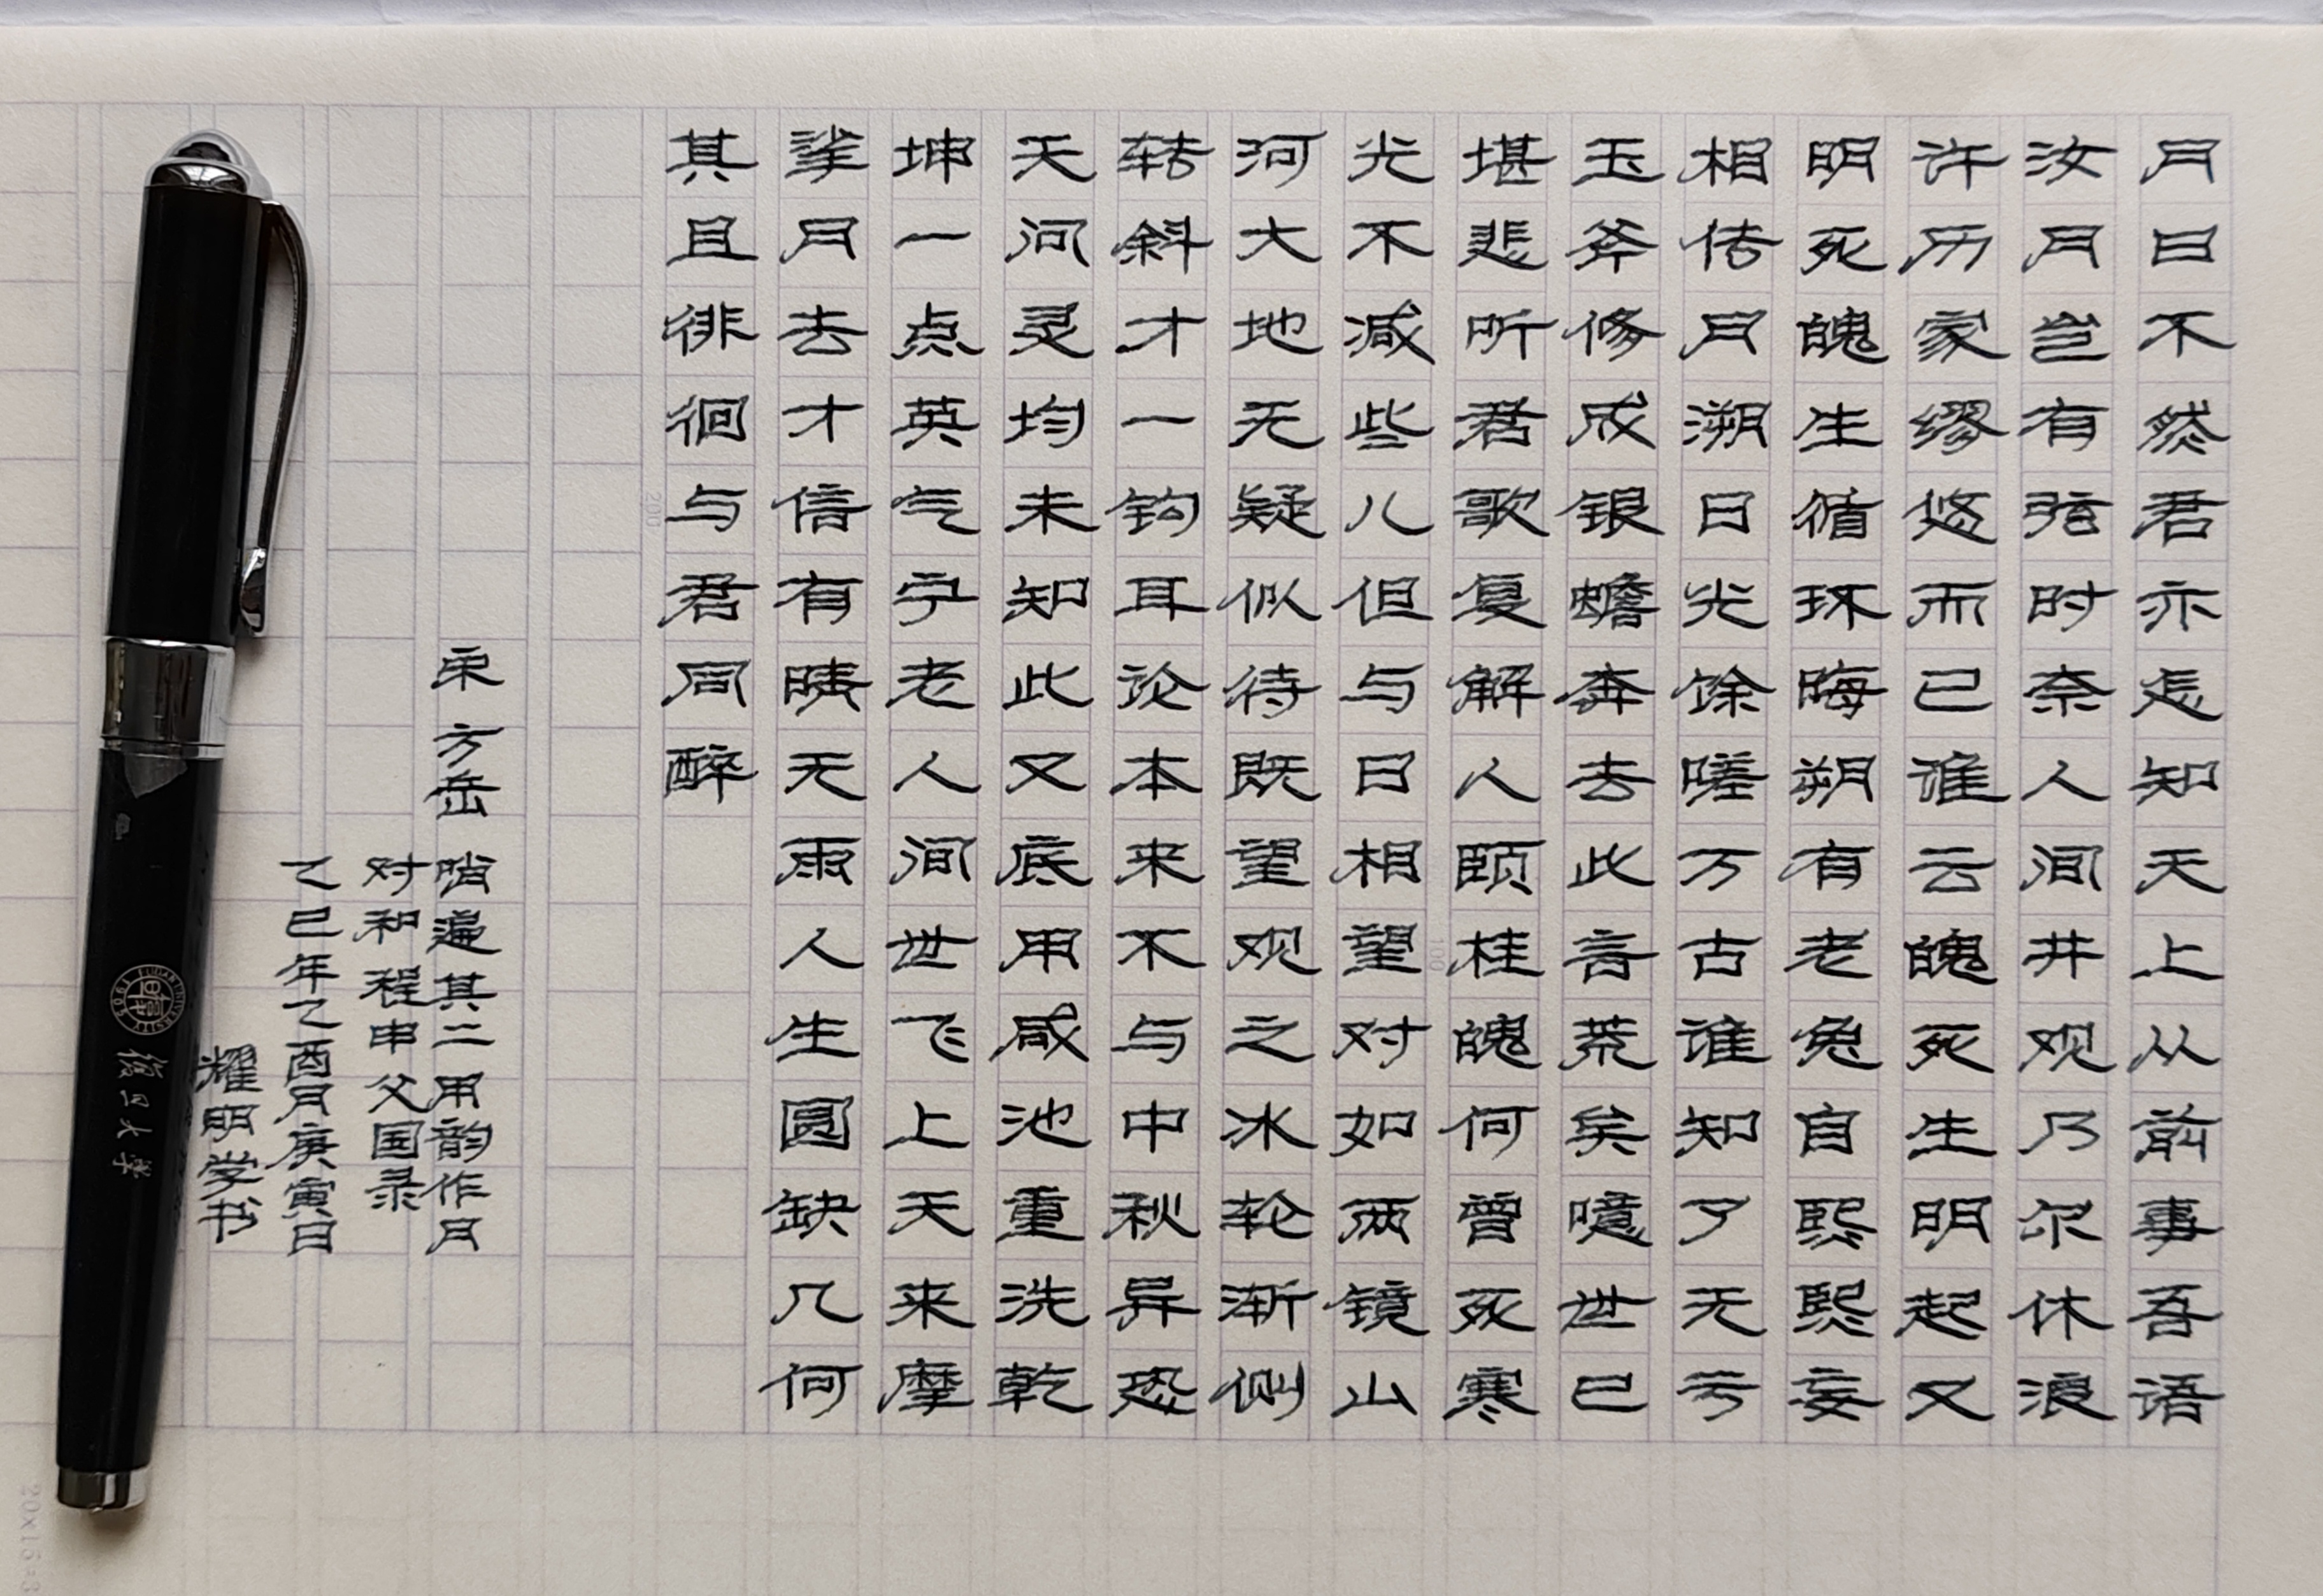 月曰不然君亦怎知天上从前事吾语
汝月岂有弦时奈人间井观乃尔休浪
许历家缪悠而已谁云魄死生明起又
明死魄生循环晦朔有老兔自熙熙妄
相传月溯日光馀嗟万古谁知了无亏
玉斧修成银蟾奔去此言荒矣噫世已
堪悲听君歌复解人颐桂魄何曾死寒
光不减些儿但与日相望对如两镜山
河大地无疑似待既望观之冰轮渐侧
转斜才一钩耳论本来不与中秋异恐
天问灵均未知此又底用咸池重洗乾
坤一点英气宁老人间世飞上天来摩
挲月去才信有晴无雨人生圆缺几何
其且徘徊与君同醉
宋 方岳 哨遍其二用韵作月
对和程申父国录
乙巳年乙酉月庚寅日
耀明学书
FUDAN UNIVERSITY 1905
復旦大學
100
200